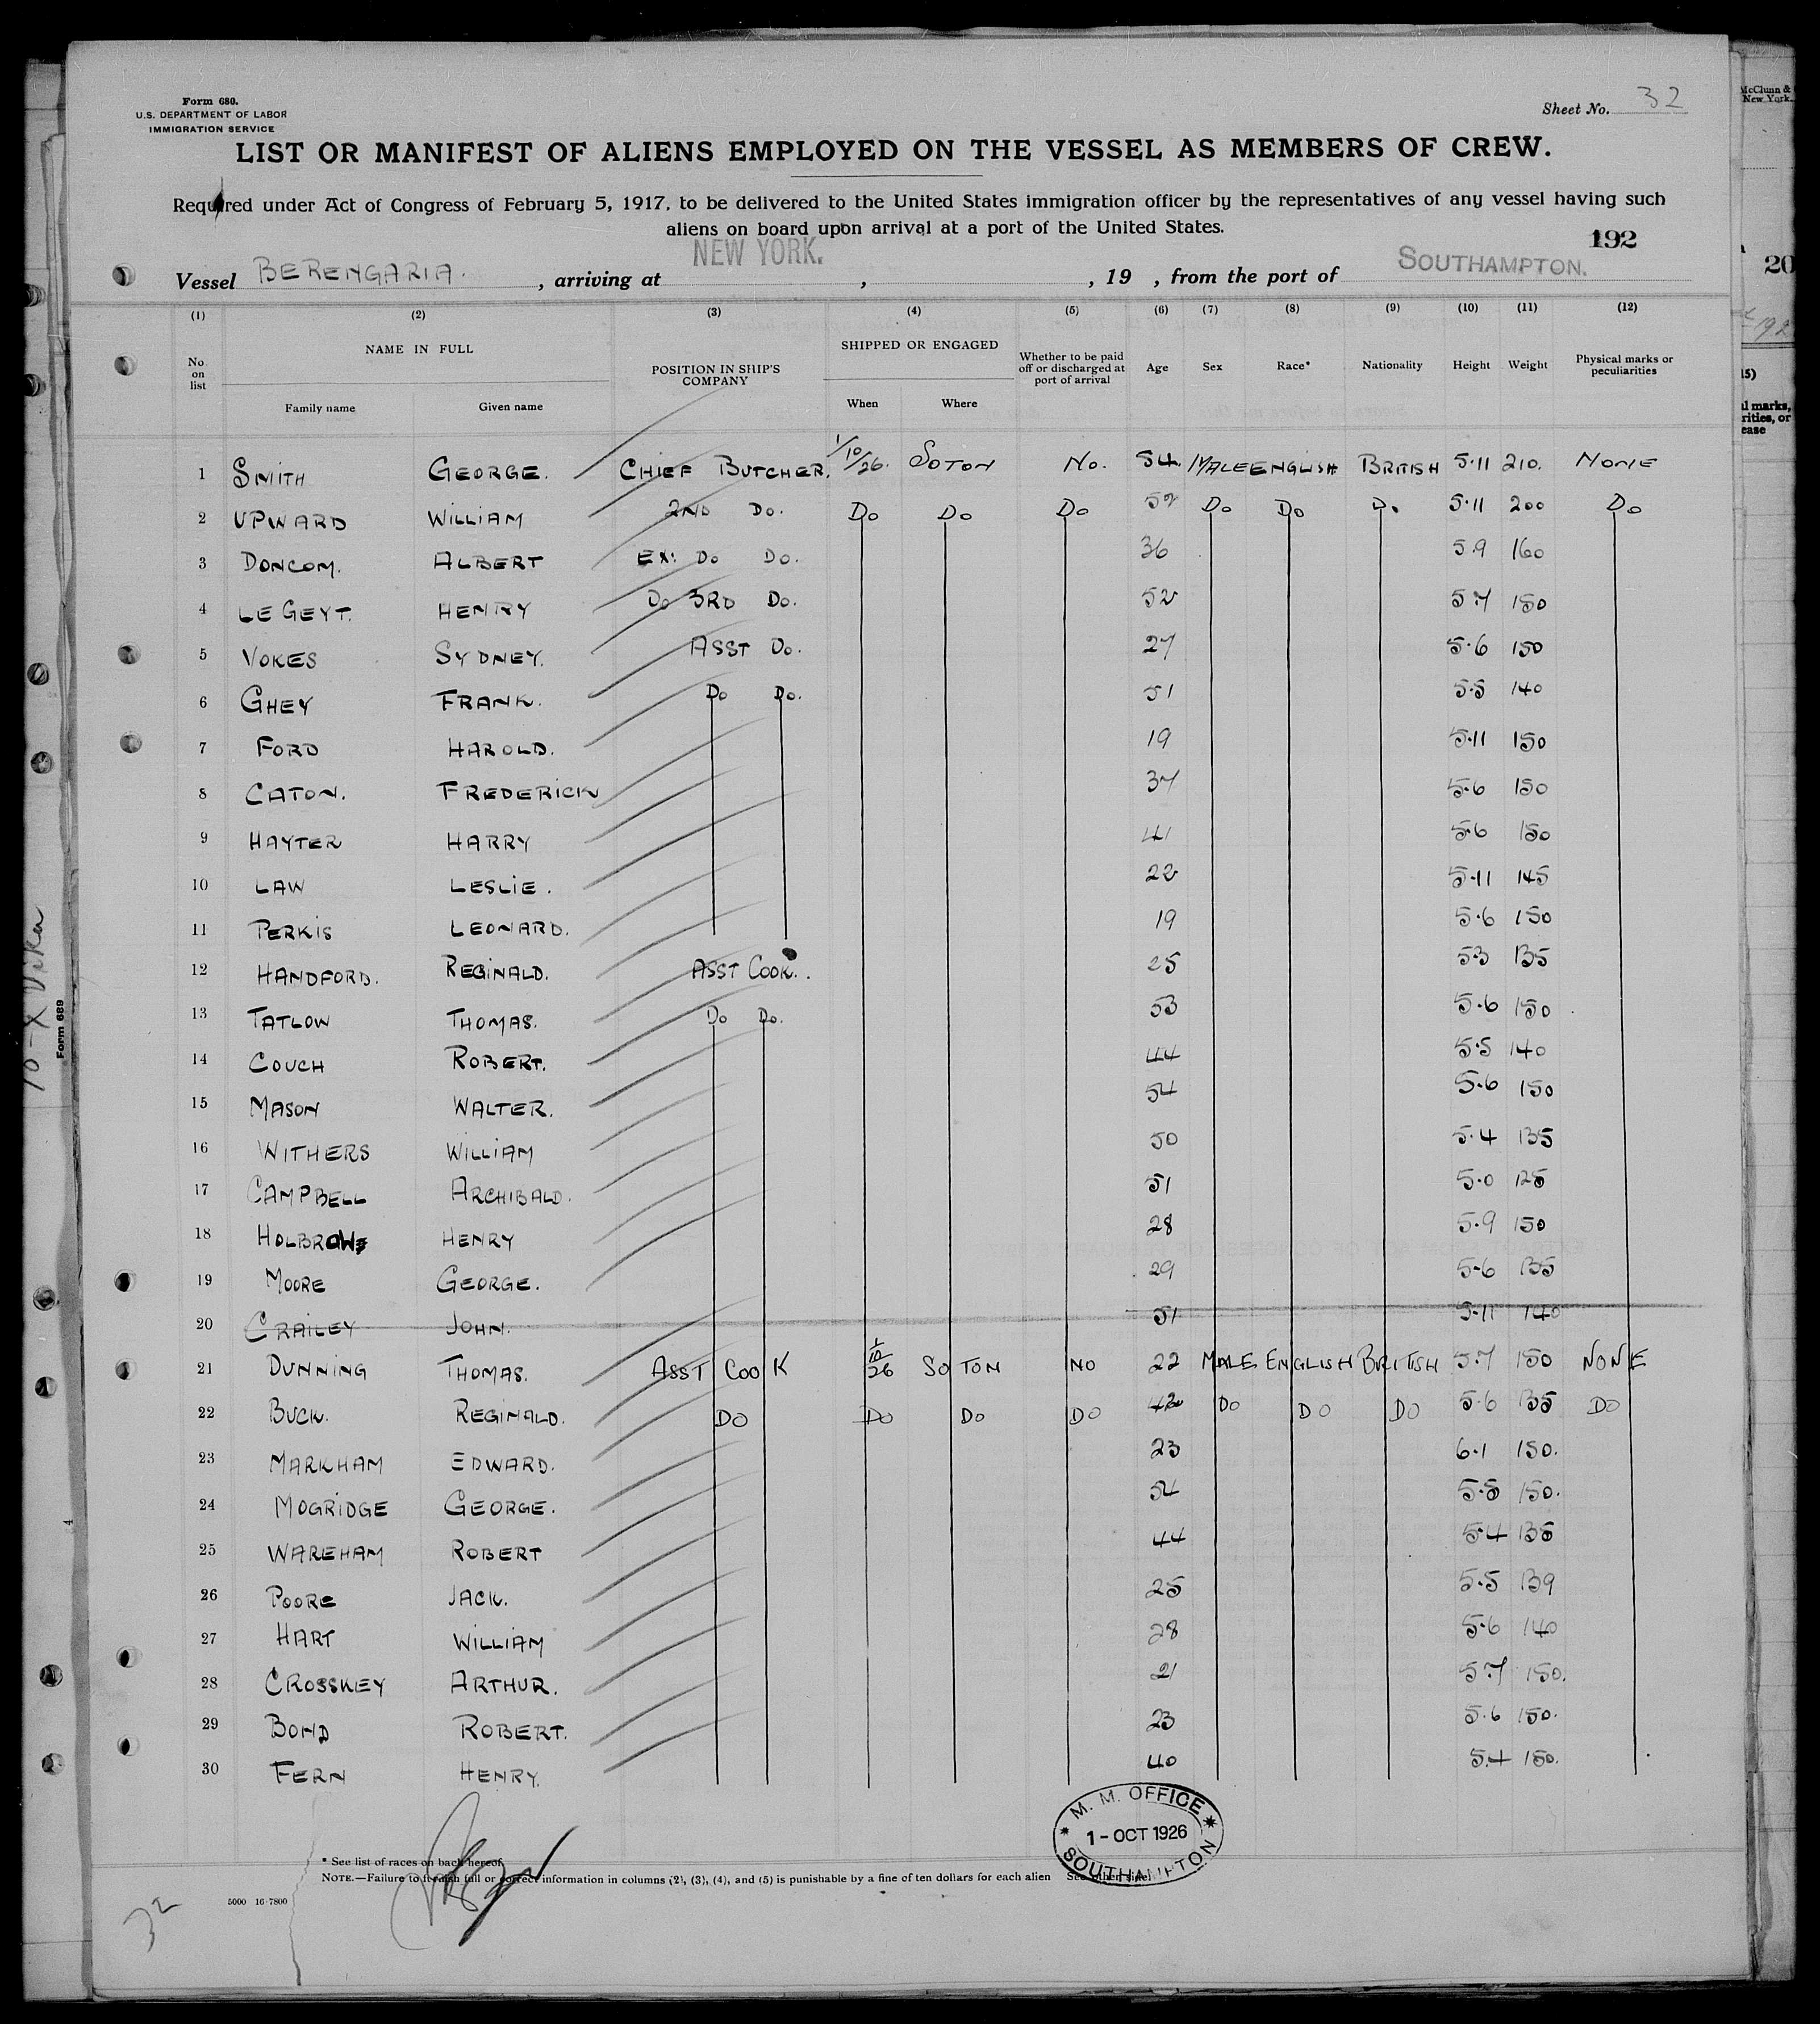 Form 680.
U.S. DEPARTMENT OF LABOR
IMMIGRATION SERVICE
Sheet No. 32
LIST OR MANIFEST OF ALIENS EMPLOYED ON THE VESSEL AS MEMBERS OF CREW.
Required under Act of Congress of February 5, 1917, to be delivered to the United States immigration officer by the representatives of any vessel having such
aliens on board upon arrival at a port of the United States.
192
Vessel BERENGARIA. , arriving at NEW YORK. , , 19 , from the port of SOUTHAMPTON.
(1) (2) (3) (4) (5) (6) (7) (8) (9) (10) (11) (12)
No. on list NAME IN FULL Family name Given name POSITION IN SHIP'S COMPANY SHIPPED OR ENGAGED When Where Whether to be paid off or discharged at port of arrival Age Sex Race* Nationality Height Weight Physical marks or peculiarities
1 SMITH GEORGE. CHIEF BUTCHER. 1/10/26. SOTON No. 54 MALE ENGLISH BRITISH 5.11 210. NONE
2 UPWARD WILLIAM 2ND Do. Do Do Do 52 Do Do Do 5.11 200 Do
3 DONCOM. ALBERT EX: Do Do. 36 5.9 160
4 LE GEYT. HENRY Do 3RD Do. 52 5.7 150
5 VOKES SYDNEY. ASST Do. 27 5.6 150
6 GHEY FRANK. Do Do. 51 5.5 140
7 FORD HAROLD. 19 5.11 150
8 CATON. FREDERICK 37 5.6 150
9 HAYTER HARRY 41 5.6 150
10 LAW LESLIE. 22 5.11 145
11 PERKIS LEONARD. 19 5.6 150
12 HANDFORD. REGINALD. ASST COOK. 25 5.3 135
13 TATLOW THOMAS. Do Do. 53 5.6 150
14 COUCH ROBERT. 44 5.5 140
15 MASON WALTER. 54 5.6 150
16 WITHERS WILLIAM 50 5.4 135
17 CAMPBELL ARCHIBALD. 51 5.0 125
18 HENRY 28 5.9 150
19 MOORE GEORGE. 29 5.6 135
20 CRAILEY JOHN. 51 5.11 140
21 DUNNING THOMAS. ASST COOK 1/10/26 SOTON NO 22 MALE ENGLISH BRITISH 5.7 150 NONE
22 BUCK. REGINALD. DO DO DO DO DO DO DO 5.6 135 DO
23 MARKHAM EDWARD. 23 6.1 150.
24 MOGRIDGE GEORGE. 54 5.8 150.
25 WAREHAM ROBERT 44 5.4 135
26 POORE JACK. 25 5.5 139
27 HART WILLIAM 28 5.6 140
28 CROSSKEY ARTHUR. 21 5.7 150.
29 BOND ROBERT. 23 5.6 150.
30 FERN HENRY. 40 5.4 150.
M. M. OFFICE
1 - OCT 1926
SOUTHAMPTON
* See list of races on back hereof.
NOTE.—Failure to furnish full or correct information in columns (2), (3), (4), and (5) is punishable by a fine of ten dollars for each alien See other side
5000 16-7800
32
Form 689
4
McClunn &
New York.
20
15)
al marks,
rities, or
ease